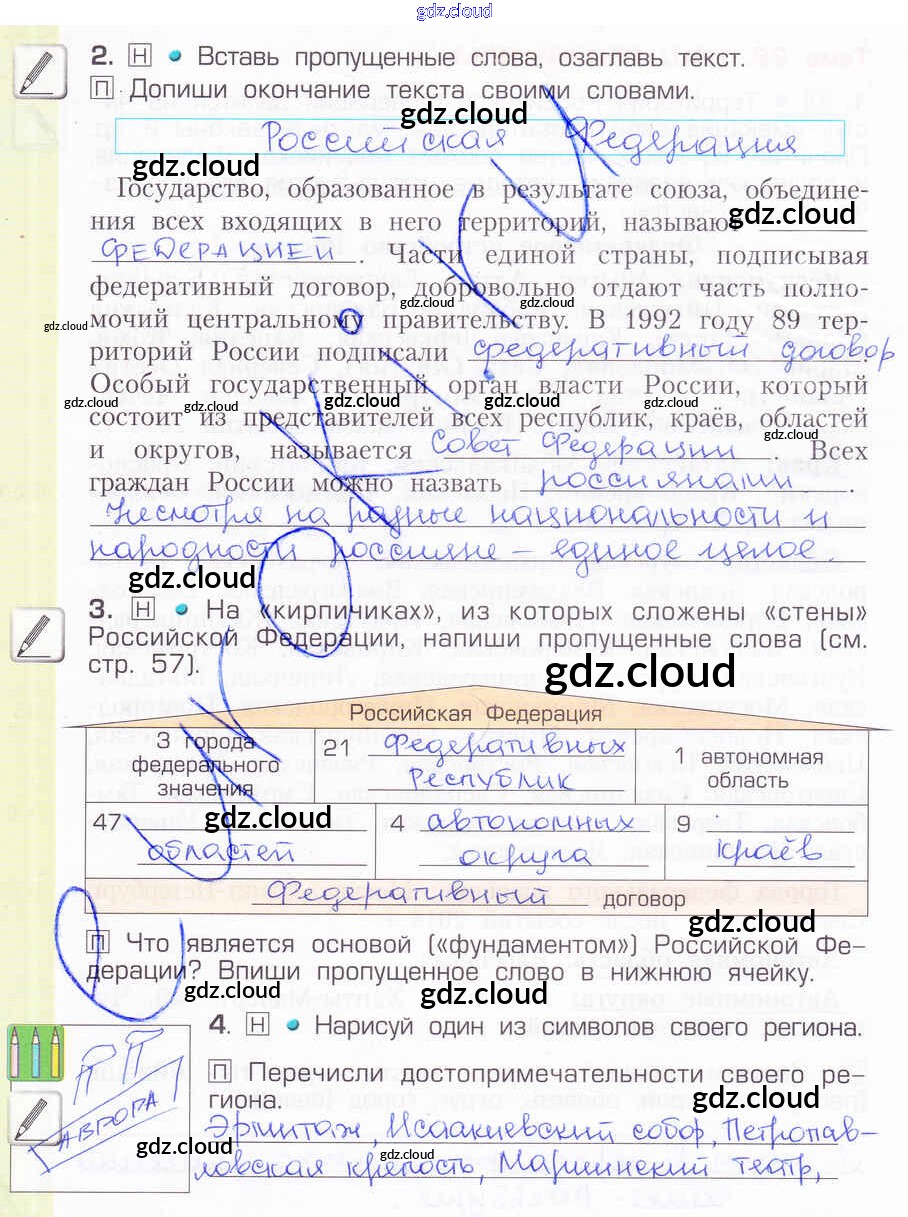 gdz.cloud
2. Н • Вставь пропущенные слова, озаглавь текст.
П Допиши окончание текста своими словами.
gdz.cloud
gdz.cloud
Российская Федерация
gdz.cloud
Государство, образованное в результате союза, объедине-
ния всех входящих в него территорий, называют
gdz.cloud
ФЕДЕРАЦИЕЙ. Части единой страны, подписывая
федеративный договор, добровольно отдают часть полно-
gdz.cloud
gdz.cloud
gdz.cloud
мочий центральному правительству. В 1992 году 89 тер-
риторий России подписали федеративный договор
Особый государственный орган власти России, который
gdz.cloud
gdz.cloud
gdz.cloud
состоит из представителей всех республик, краёв, областей
gdz.cloud
и округов, называется Совет Федерации. Всех
граждан России можно назвать россиянами.
Несмотря на разные национальности и
народности россияне – единое целое
gdz.cloud
3. Н • На «кирпичиках», из которых сложены «стены»
Российской Федерации, напиши пропущенные слова (см.
стр. 57).
gdz.cloud
Российская Федерация
3 города
федерального
значения
21 Федеративных
Республик
1 автономная
область
47
областей
gdz.cloud
4 автономных
округа
9
краёв
gdz.cloud
Федеративный договор
gdz.cloud
П Что является основой («фундаментом») Российской Фе-
дерации? Впиши пропущенное слово в нижнюю ячейку.
gdz.cloud
gdz.cloud
4. Н • Нарисуй один из символов своего региона.
П Перечисли достопримечательности своего ре-
гиона.
gdz.cloud
АВРОРА
Эрмитаж, Исаакиевский собор, Петропав-
gdz.cloud
gdz.cloud
ловская крепость, Мариинский театр,